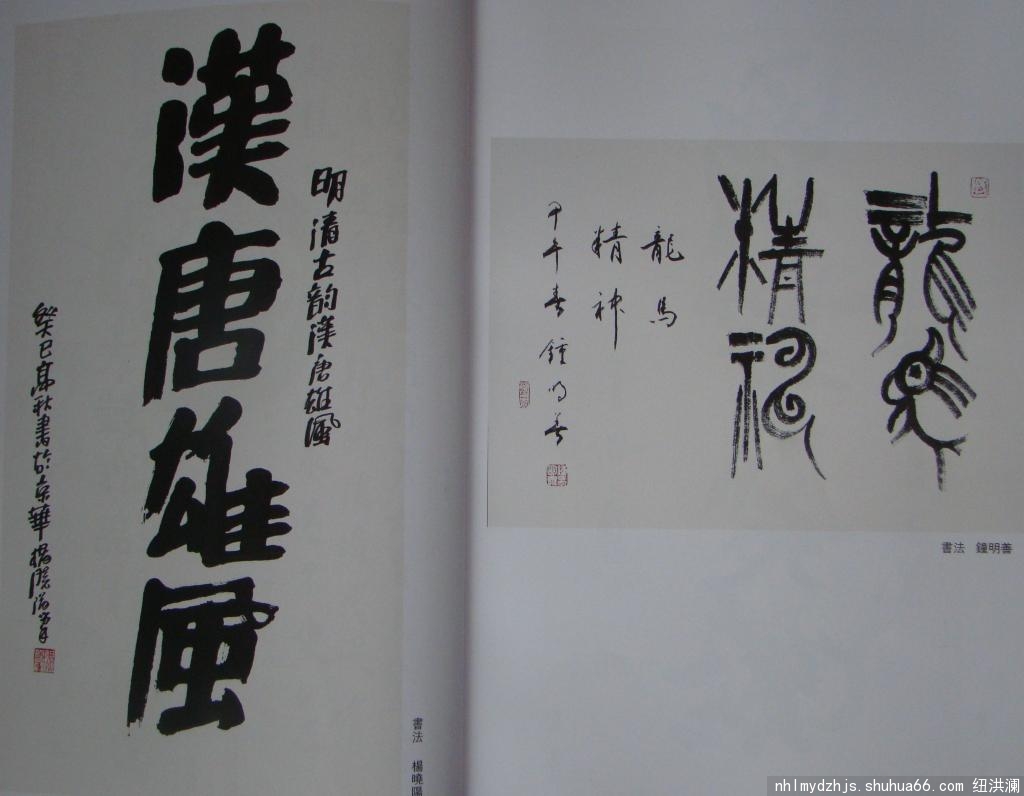 漢唐雄風
明清古韵漢唐雄風
癸巳高秋書於京華楊曉陽
書法 楊曉陽
龍馬
精神
龍馬
精神
甲午春鍾明善
書法 鐘明善
nhlmydzhjs.shuhua66.com 纽洪澜